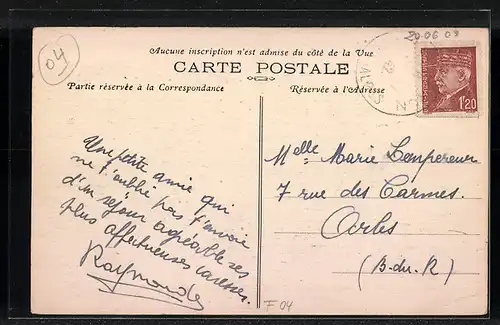 20 06 09
04
Aucune inscription n'est admise du côté de la Vue
CARTE POSTALE
Partie réservée à la Correspondance
Réservée à l'Adresse
1f20
Une petite amie qui
ne t'oublie pas t'envoie
d'un séjour agréable ses
plus affectueuses caresses.
Raymonde
Melle Marie Lempereur
7 rue des Carmes.
Arles
(B-du-R)
F 04